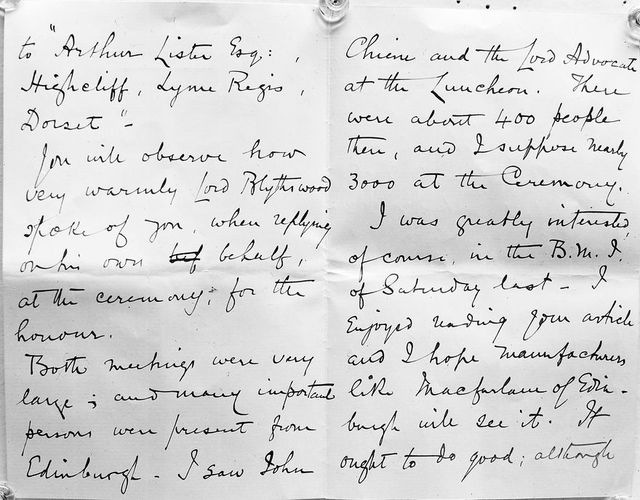 to "Arthur Lister Esq: ,
Highcliff, Lyme Regis,
Dorset"-
You will observe how
very warmly Lord Blythswood
spoke of you, when replying
on his own behalf,
at the ceremony, for the
honour.
Both meetings were very
large; and many important
persons were present from
Edinburgh - I saw John
Chiene and the Lord Advocate
at the Luncheon. There
were about 400 people
there, and I suppose nearly
3000 at the Ceremony.
I was greatly interested,
of course, in the B.M.J.
of Saturday last - I
enjoyed reading your article
and I hope manufacturers
like Macfarlane of Edin-
burgh will see it. It
ought to do good; although